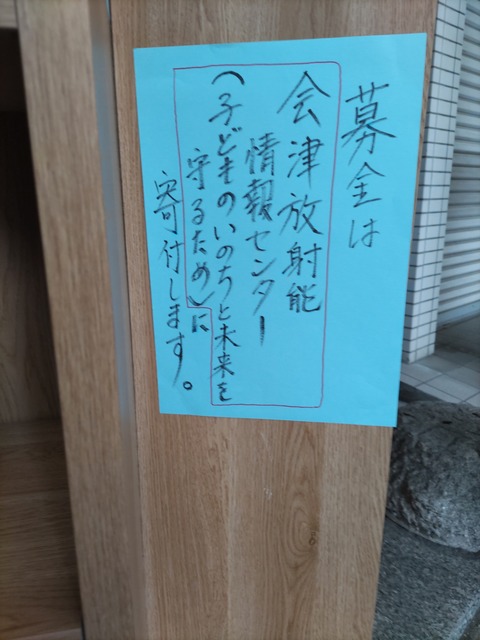 募金は
会津放射能
情報センター
(子どものいのちと未来を
守るため)に
寄付します。